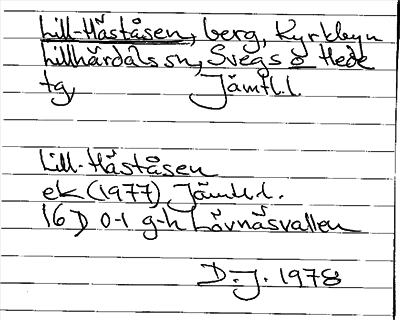 Lill-Håståsen, berg, Kyrkbyn
Lillhärdals sn, Svegs o Hede
tg, Jämtl.l.
Lill-Håståsen
ek (1977) Jämtl.l.
16 D 0-1 g-h Lövnäsvallen
D.J. 1978